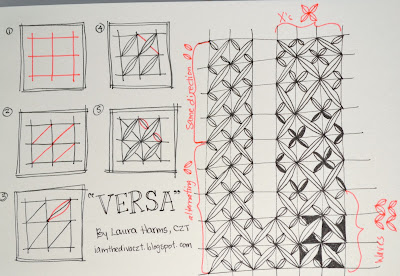 ①
④
②
⑤
③
"VERSA"
By Laura Harms, CZT
iamthedivaczt.blogspot.com
Same direction
alternating
X's
Waves